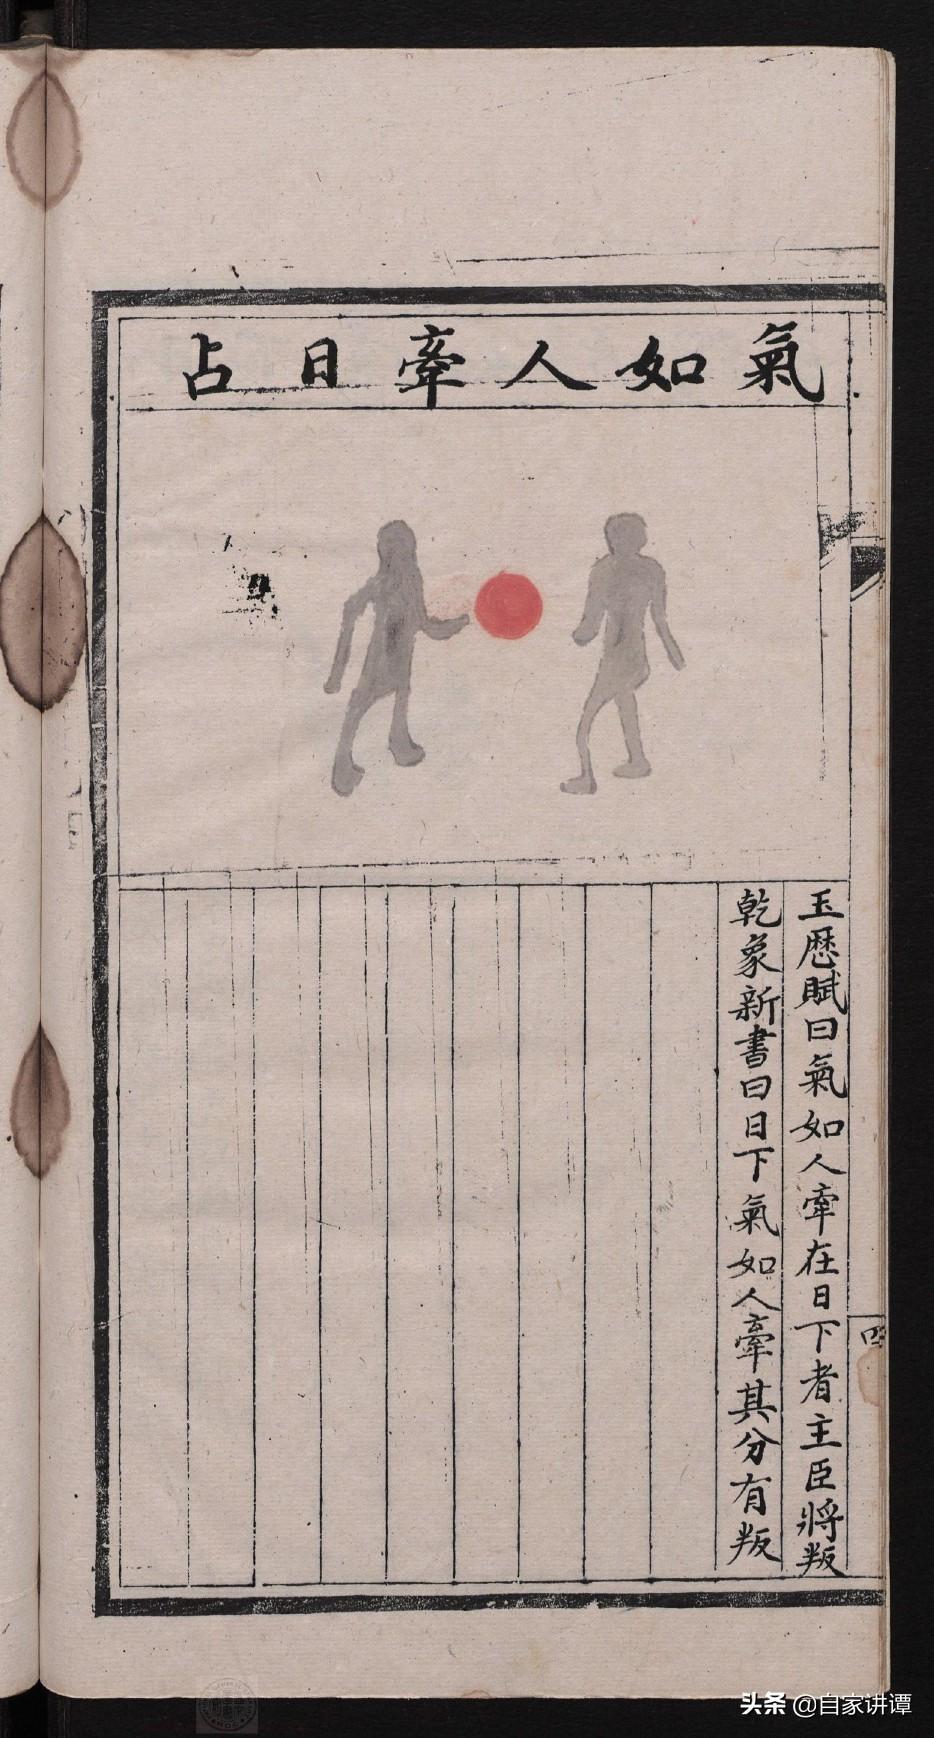 氣如人牽日占
玉歷賦曰氣如人牽在日下者主臣將叛
乾象新書曰日下氣如人牽其分有叛
四
头条 @自家讲谭